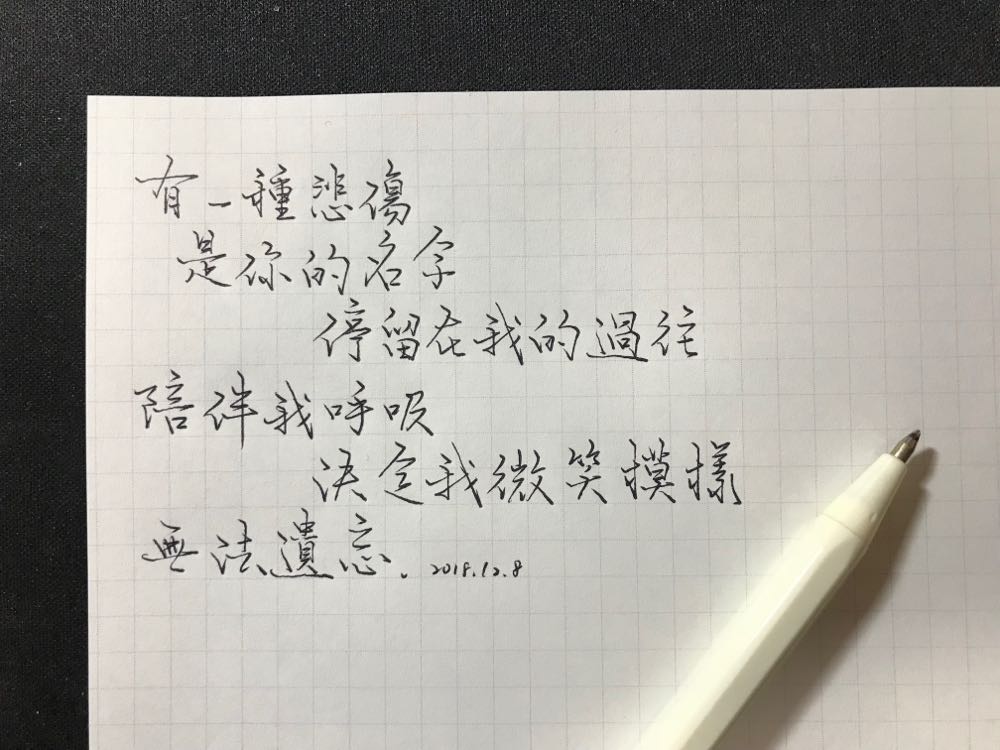 有一種悲傷
是你的名字
停留在我的過往
陪伴我呼吸
決定我微笑模樣
無法遺忘. 2018.12.8